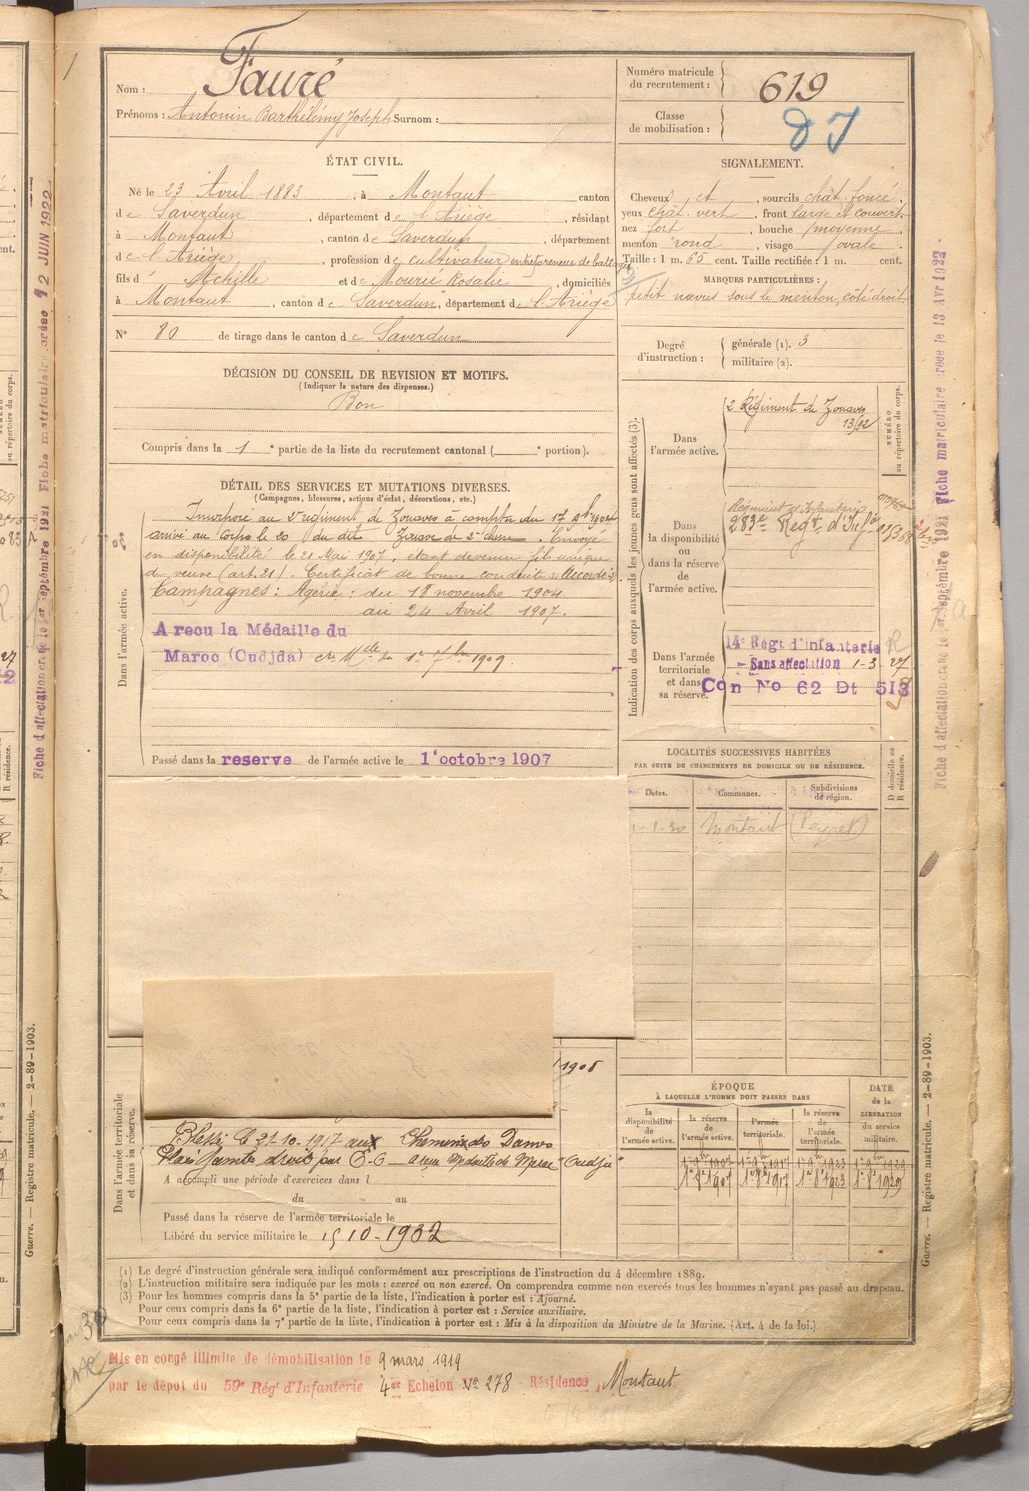 Nom : Fauré
Prénoms : Antonin Barthélémy Joseph Surnom :
Numéro matricule du recrutement : 619
Classe de mobilisation :
ÉTAT CIVIL.
Né le 23 Avril 1883, à Montaut canton
de Saverdun, département de l'Ariège, résidant
à Montaut, canton de Saverdun, département
de l'Ariège, profession de cultivateur entrepreneur de battage
fils d' Achille et de Mourié Rosalie, domiciliés
à Montaut, canton de Saverdun, département de l'Ariège
N° 80 de tirage dans le canton de Saverdun
SIGNALEMENT.
Cheveux et, sourcils chât. foncé.
yeux chât. vert, front large et couvert.
nez fort, bouche moyenne.
menton rond, visage ovale.
Taille : 1 m. 65 cent. Taille rectifiée : 1 m. cent.
MARQUES PARTICULIÈRES :
petit nævus sous le menton, côté droit.
Degré d'instruction : générale (1). 3
militaire (2).
DÉCISION DU CONSEIL DE REVISION ET MOTIFS.
(Indiquer la nature des dispenses.)
Bon
Compris dans la 1e partie de la liste du recrutement cantonal ( e portion).
DÉTAIL DES SERVICES ET MUTATIONS DIVERSES.
(Campagnes, blessures, actions d'éclat, décorations, etc.)
Dans l'armée active.
Incorporé au 2e régiment de Zouaves à compter du 17 9bre 1904
arrivé au corps le 20 du dit Zouave de 2e classe. Envoyé
en disponibilité le 21 Mai 1907, étant devenu fils unique
de veuve (art. 21). Certificat de bonne conduite "Accordé".
Campagnes : Algérie : du 18 novembre 1904
au 24 Avril 1907.
A recu la Médaille du
Maroc (Oudjda)
1909.
Passé dans la reserve de l'armée active le 1er octobre 1907
Indication des corps auxquels les jeunes gens sont affectés (3).
NUMÉRO au répertoire du corps.
Dans l'armée active.
2e Régiment de Zouaves
Dans la disponibilité ou dans la réserve de l'armée active.
Régiment d'Infanterie
283e Régt. d'Infie
Dans l'armée territoriale et dans sa réserve.
14e Régt d'Infanterie
Sans affectation 1-3-27
Con No 62 Dt 513
LOCALITÉS SUCCESSIVES HABITÉES
PAR SUITE DE CHANGEMENTS DE DOMICILE OU DE RÉSIDENCE.
Dates. Communes. Subdivisions de région. D domicile ou R résidence.
Montaut (Peyret)
ÉPOQUE
À LAQUELLE L'HOMME DOIT PASSER DANS
DATE de la LIBÉRATION du service militaire.
la disponibilité de l'armée active. la réserve de l'armée active. l'armée territoriale. la réserve de l'armée territoriale.
Dans l'armée territoriale et dans sa réserve.
Blessé le 21-10-1917 aux Chemin des Dames
Plaie Jambe droite par E.O
"Oudjda"
A accompli une période d'exercices dans l
du au
Passé dans la réserve de l'armée territoriale le
Libéré du service militaire le 15 10-1932
(1) Le degré d'instruction générale sera indiqué conformément aux prescriptions de l'instruction du 4 décembre 1889.
(2) L'instruction militaire sera indiquée par les mots : exercé ou non exercé. On comprendra comme non exercés tous les hommes n'ayant pas passé au drapeau.
(3) Pour les hommes compris dans la 5e partie de la liste, l'indication à porter est : Ajourné.
Pour ceux compris dans la 6e partie de la liste, l'indication à porter est : Service auxiliaire.
Pour ceux compris dans la 7e partie de la liste, l'indication à porter est : Mis à la disposition du Ministre de la Marine. (Art. 4 de la loi.)
Mis en congé illimité de démobilisation le 9 mars 1919
par le dépôt du 59e Régt d'Infanterie 4e Echelon N° 278 Résidence, Montaut
Guerre. — Registre matricule. — 2-89-1903.
Guerre. — Registre matricule. — 2-89-1903.
Fiche d'affectation créée le 1er septembre 1921 Fiche matriculaire créée le 12 JUIN 1922
Fiche d'affectation créée le 1er septembre 1921 Fiche matriculaire créée le 13 Avr 1922